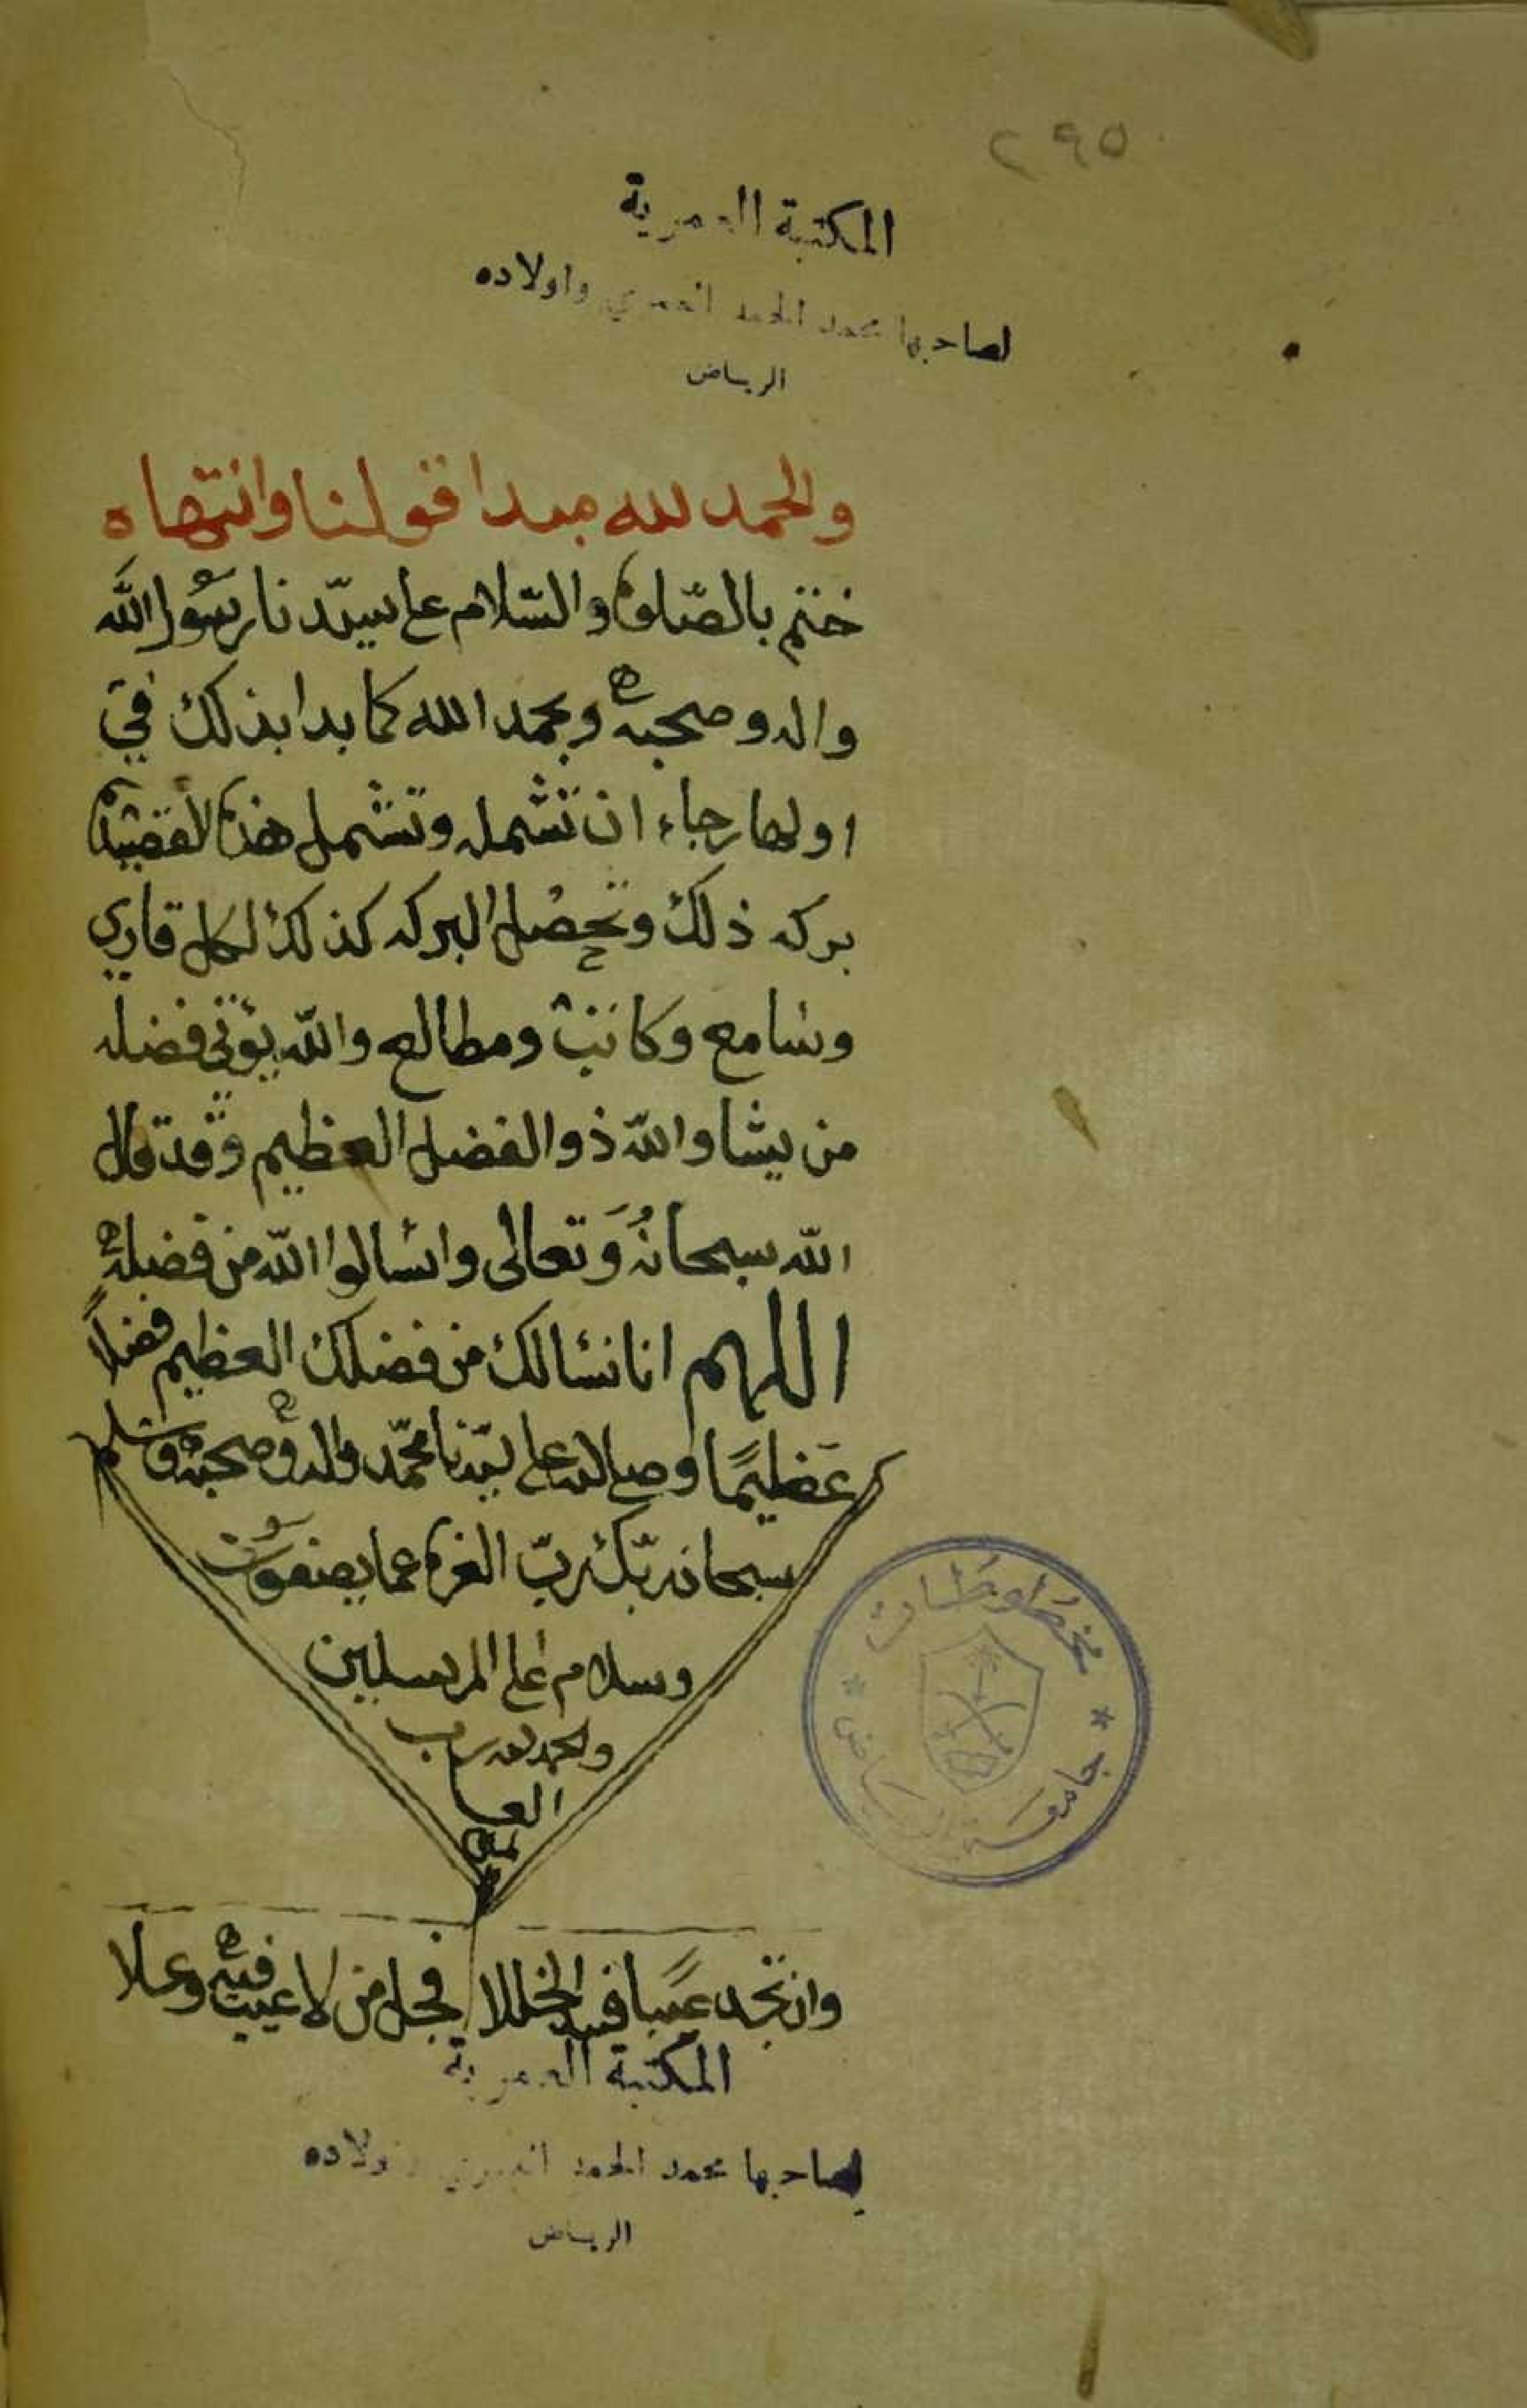 ٢٩٥
المكتبة العمرية
لصاحبها محمد الحمد العمري واولاده
الرياض
والحمد لله مبدا قولنا وانتهاه
ختم بالصلوة والسلام على سيّدنا رسُول اللَّه
واله وصحبه وبحمد الله كما بدا بذلك في
اولها رجاء ان تشمله وتشمل هذه القصيدة
بركه ذلك وتحصل البركه كذلك لكل قاري
وسامع وكاتب ومطالع والله يؤتي فضله
من يشا والله ذو الفضل العظيم وقد قال
الله سبحانهُ وَتعالى واسالوا الله من فضله
اللهم انا نسالك من فضلك العظيم فضلاً
عَظيمًا وصلى الله على سيّدنا محمّد واله وصحبه وسلم
سبحان ربّك ربّ العزة عما يصفون
وسلام على المرسلين
والحمد لله رب
العا
لمين
وان تجد عيبًا فسد الخللا فجل من لا عيب فيه وعلا
المكتبة العمرية
لصاحبها محمد الحمد العمري واولاده
الرياض
مخطوطات
جامعة الرياض